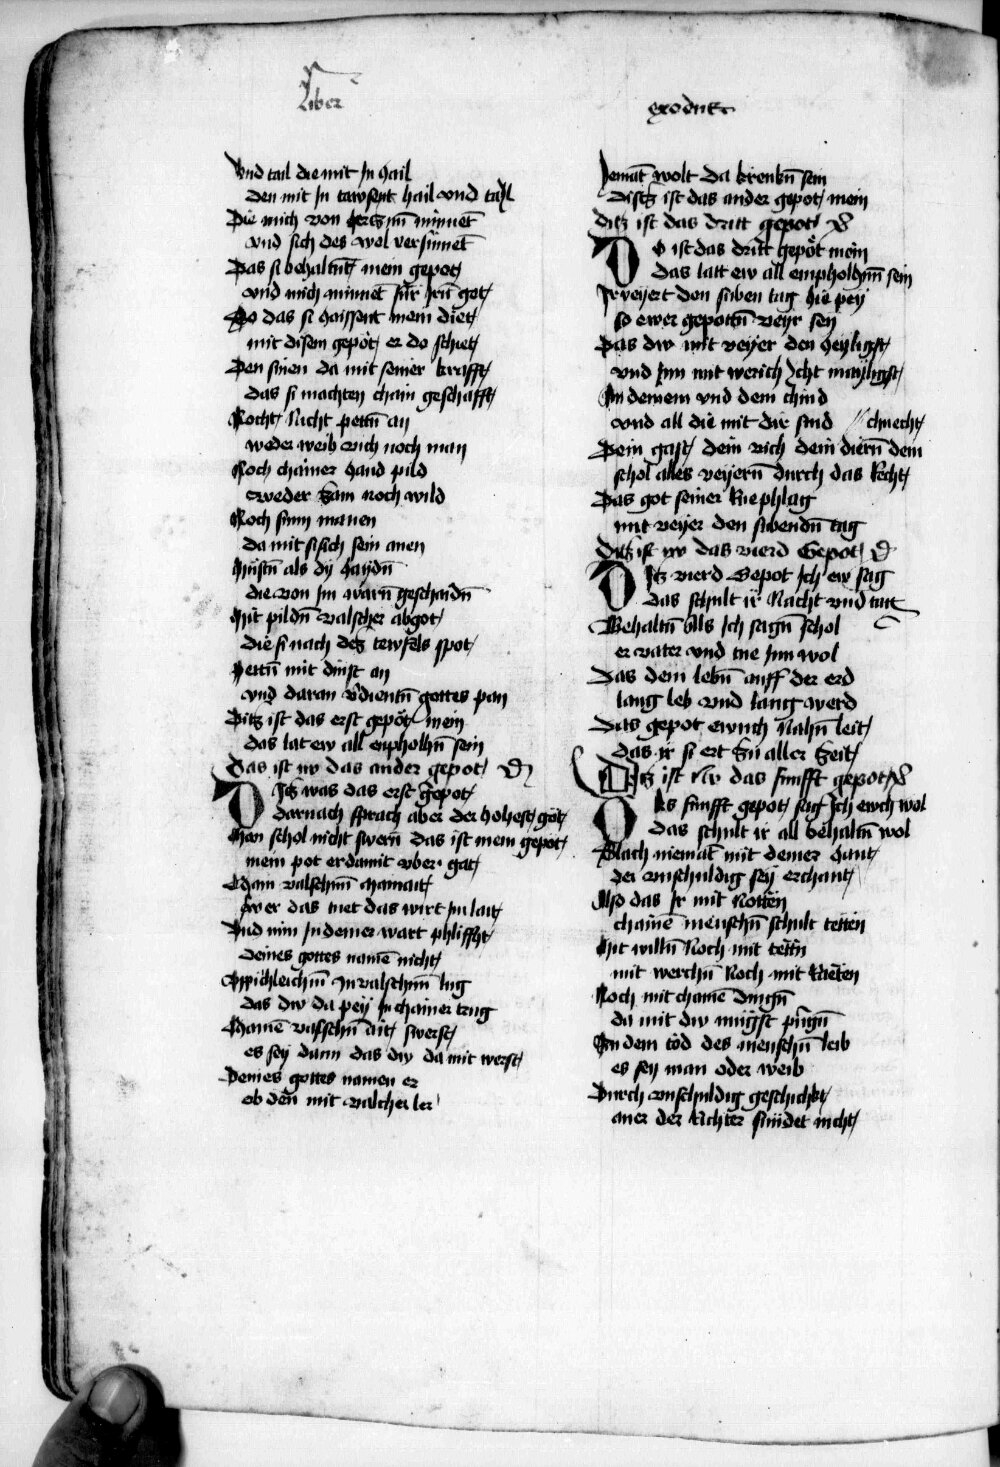 Liber
exodus
Vnd tail die mit Jn hail
den mit Jn tawsent hail vnd tail
Die mich von hertzm̄ minnet
vnd sich des wol versinnet
Das si behaltn̄t mein gepot
vnd mich minnet für Jrn̄ got
So das si haissent mein diet
mit disem gepot er do schiet
Den sinen da mit seiner krafft
das si machten chain geschafft
Nocht nicht pettn̄ an
weder weib vich noch man
Noch chainer hand pild
weder zam noch wild
Noch sunn manen
da mit si sich sein anen
Müstn̄ als dy haydn̄
die von Jm warn̄ geschaidn̄
Mit pildn̄ valscher abgot
die si nach des tewfels spot
Pettn̄ mit dinst an
vnd daran v̄dientn̄ gottes pan
Ditz ist das erst gepot mein
das lat ew all enpholhn̄ sein
Das ist nv das ander gepot
Ditz was das erst gepot
darnach sprach aber der hohest got
Man schol nicht swern̄ das ist mein gepot
mein pot er damit vber gat
Chain valschm̄ mainait
swer das tuet das wirt Jm lait
Vnd nim Jn deiner wart phlifft
deines gottes namē nicht
Vppichleichm̄ Jn valschm̄ lug
das dw da pey Jn chainer trug
Chainē valschn̄ ait swerst
es sey dann das dw da mit werst
Deines gottes namen er
ob den̄ mit valscher ler
Jemāt wolt da krenkn̄ sein
Ditz ist das ander gepot mein
ditz ist das dritt gepot
Do ist das dritt gepot mein
das latt ew all empholhn̄ sein
Jr veyert den siben tag hie pey
so ewer gepottn̄ veyr sey
Das dw mit veyer den heyligst
vnd Jnn mit werich Jcht mayligst
Jn deinem vnd dein chind
vnd all die mit dir sind
chnecht
Dein gast dein vich dein diern̄ dein
schol alles veyern̄ durch das Recht
Das got seiner Rie phlag
mit veyer den sibendn̄ tag
Ditz ist nv das vierd Gepot
Ditz vierd Gepot Jch ew sag
das schult ir Nacht vnd tag
Behaltn̄ als Jch sagn̄ schol
er vater vnd tue Jnn wol
Das dein lebn̄ auff der erd
lang leb vnd lang werd
Das gepot ewrich Nahn̄ leit
das ir si ert zu aller zeit
Ditz ist Nv das fünfft gepot
Das fünfft gepot sag Jch ewch wol
das schult ir all behaltn̄ wol
Slach niemāt mit deiner hant
der vnschuldig sey erchant
Also das Jr mit Notten
chainē menschn̄ schult tetten
Mit willn̄ Noch mit tettn̄
mit werchn̄ Noch mit Räten
Noch mit chainē dingn̄
da mit dw mügst pringn̄
Jn dem tod des menschn̄ leib
es sey man oder weib
Durch vnschuldig geschicht
aner der Richter sündet nicht